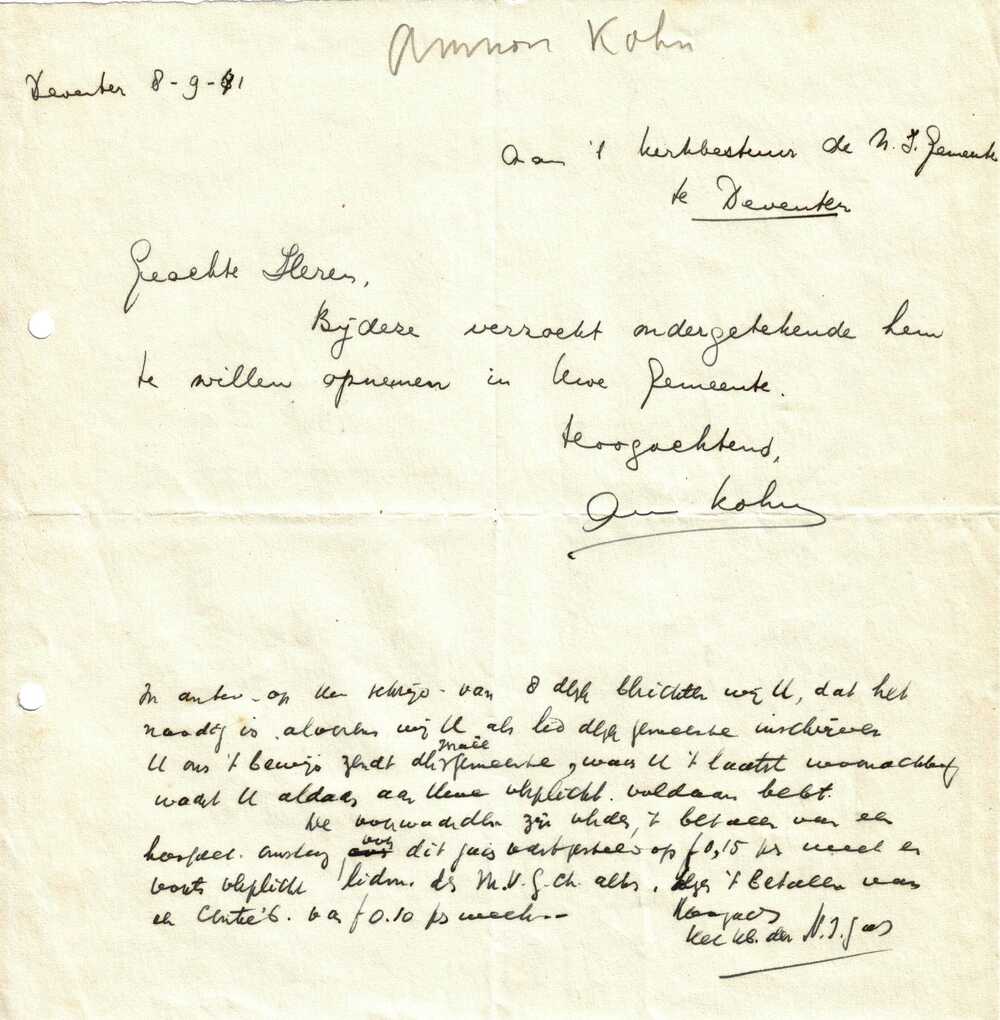 Amnon Kohn
Deventer 8-9-41
Aan 't kerkbestuur de N. I. Gemeente
te Deventer
Geachte Heren,
Bij deze verzoekt ondergetekende hem
te willen opnemen in Uwe Gemeente.
Hoogachtend,
Am Kohn
In antw. op Uw schrijv. van 8 berichten wij U, dat het
noodig is alvorens wij U als lid gemeente inschrijven
U ons 't bewijs zendt gemeente, waar U 't laatst
waart U aldaar aan Uwe verplicht. voldaan hebt.
De voorwaarden zijn verder, 't betalen van een
hoofdel. omslag voor dit jaar vastgesteld op f 0,15 per week en
voorts verplicht lidm. der 't betalen van
een contrib. van f 0.10 per week.
Hoogachtd
Kerkb. der N. I. Gem